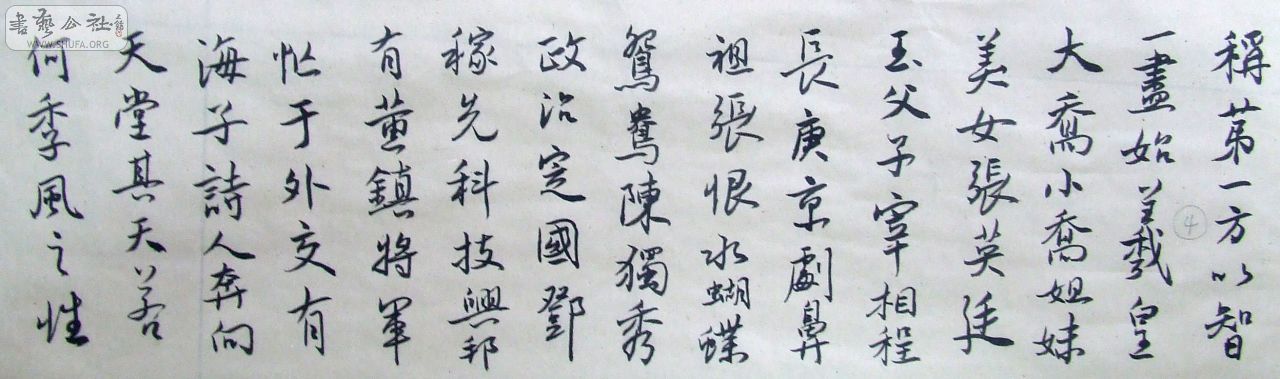 稱第一方以智
一盡始羲皇
大喬小喬姐妹
美女張英廷
玉父子宰相程
長庚京劇鼻
祖張恨水蝴蝶
鴛鴦陳獨秀
政治定國鄧
稼先科技興邦
有董鎮將軍
忙于外交有
海子詩人奔向
天堂其天若
何季風之性
4
書藝公社
WWW.SHUFA.ORG